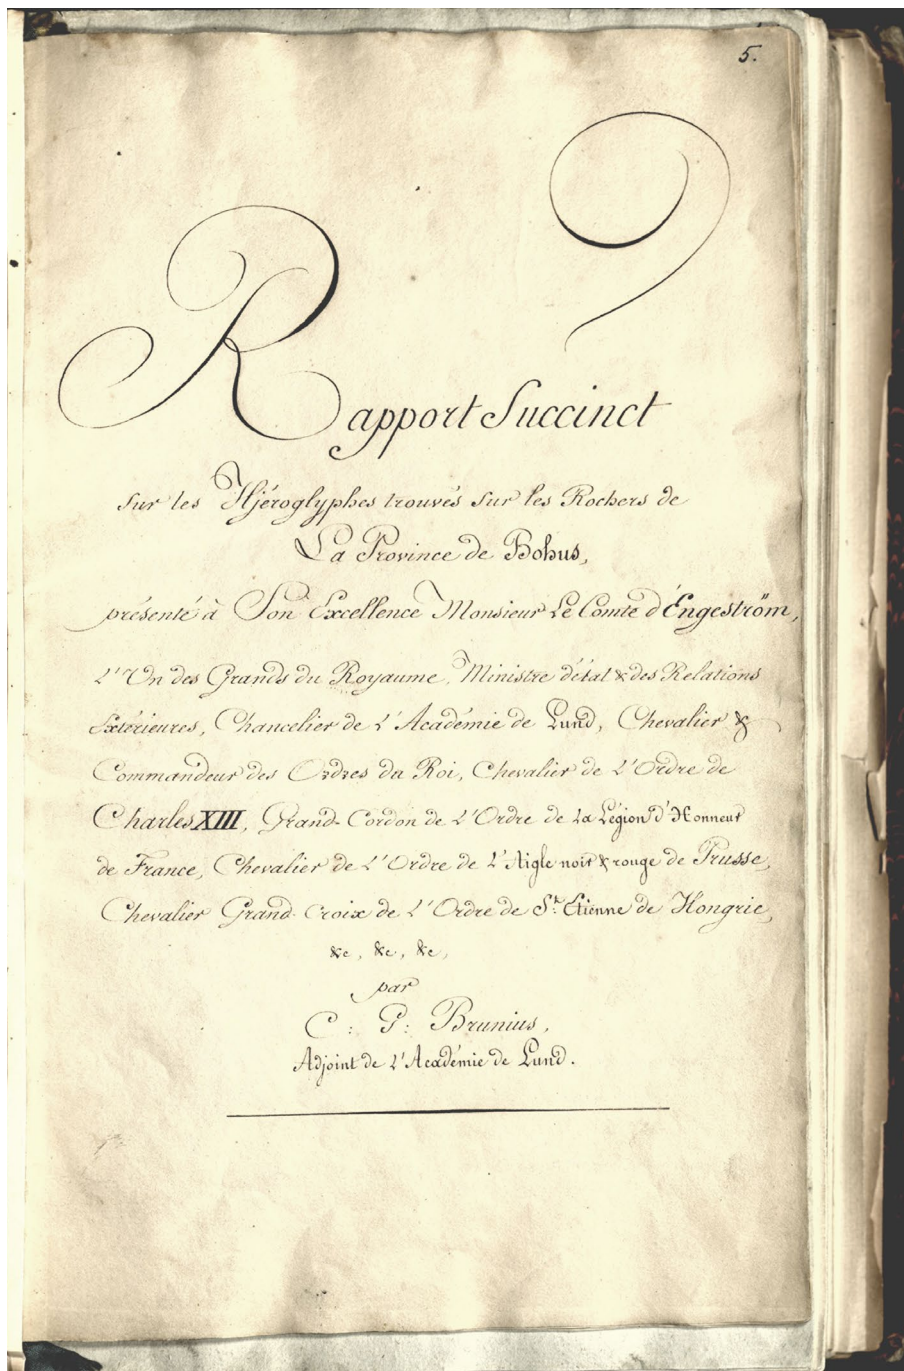 5.
Rapport Succinct
sur les Hjéroglyphes trouvés sur les Rochers de
La Province de Bohus,
présenté à Son Excellence Monsieur Le Comte d'Éngeström,
L'Un des Grands du Royaume, Ministre d'état & des Relations
Extérieures, Chancelier de L'Académie de Lund, Chevalier &
Commandeur des Ordres du Roi, Chevalier de L'Ordre de
Charles XIII, Grand-Cordon de L'Ordre de La Légion d'Honneur
de France, Chevalier de L'Ordre de L'Aigle noir & rouge de Prusse,
Chevalier Grand-Croix de L'Ordre de St. Etienne de Hongrie,
&c, &c, &c,
par
C: G: Brunius,
Adjoint de L'Académie de Lund.